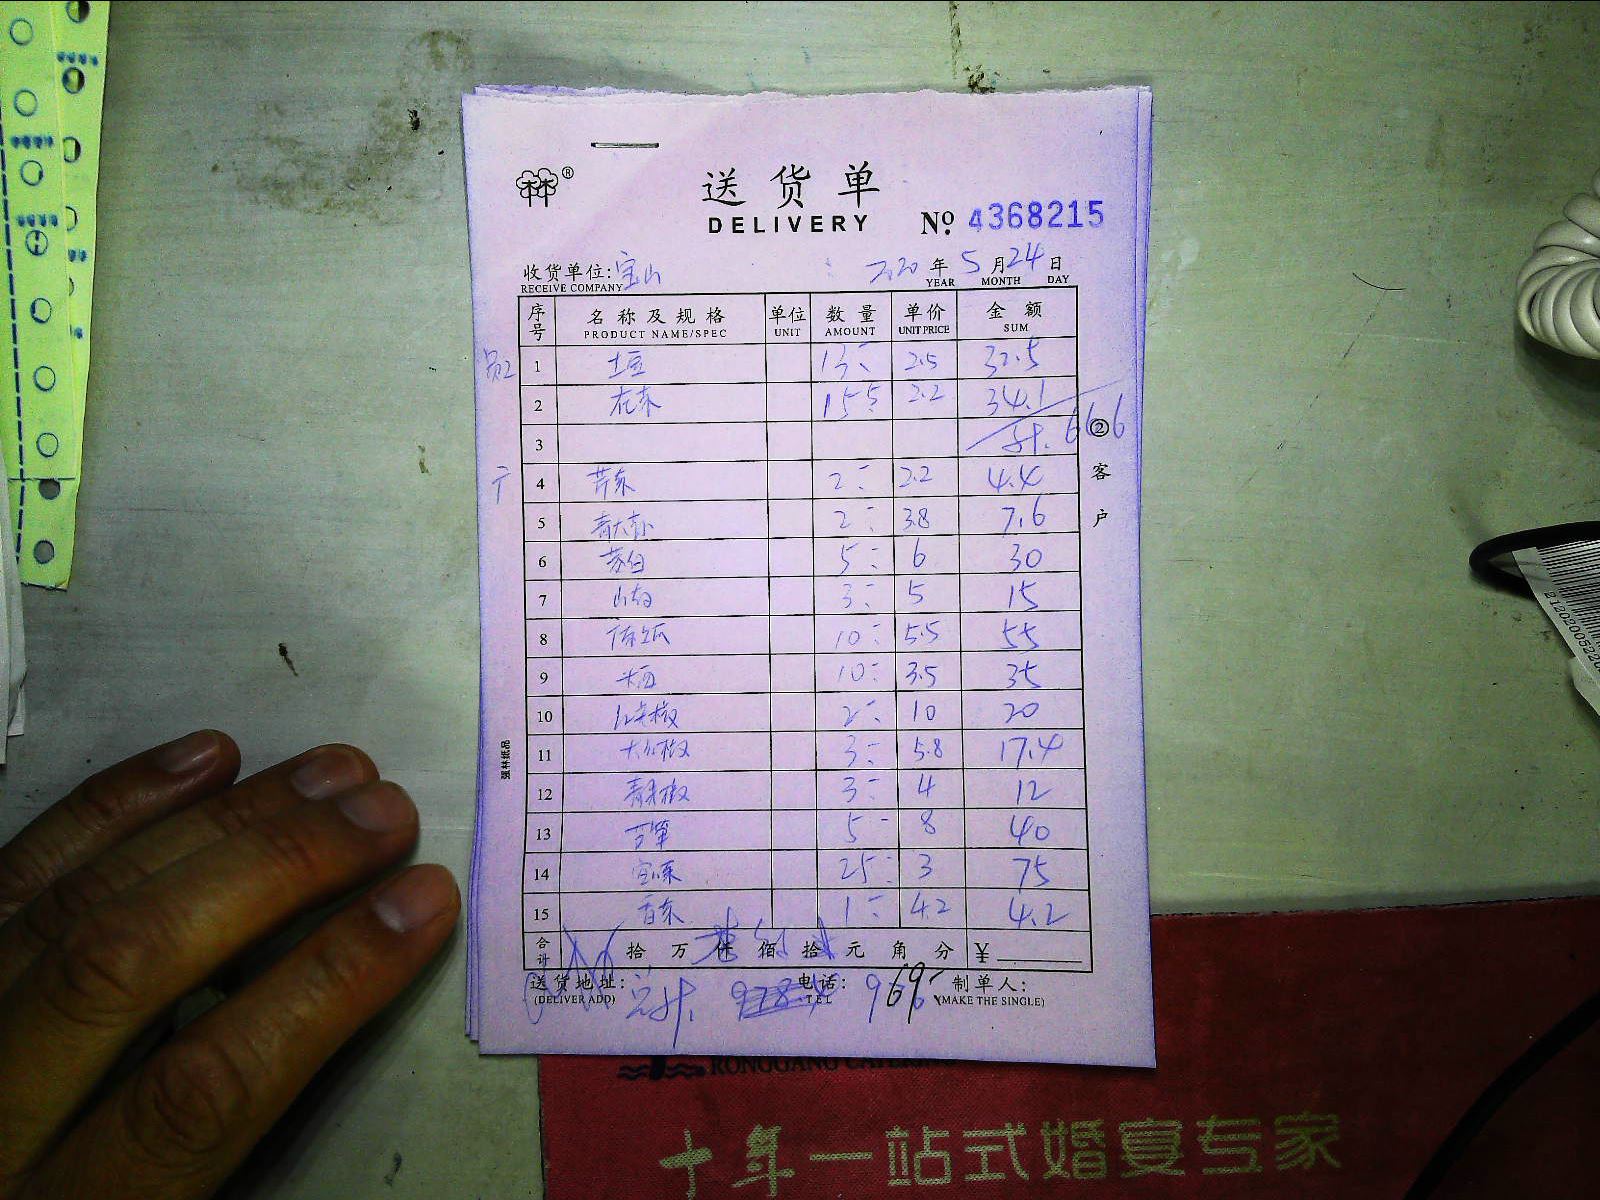 林®
送货单
DELIVERY
№ 4368215
收货单位:宝山 2020年5月24日
RECEIVE COMPANY YEAR MONTH DAY
序号 名称及规格 单位 数量 单价 金额
PRODUCT NAME/SPEC UNIT AMOUNT UNIT PRICE SUM
1 土豆 13 2.5 32.5
2 花菜 15.5 2.2 34.1
3 计. 66.6
4 芹菜 2 2.2 4.4
5 2 3.8 7.6
6 茭白 5 6 30
7 山药 3 5 15
8 10 5.5 55
9 10 3.5 35
10 红尖椒 2 10 20
11 大红椒 3 5.8 17.4
12 青尖椒 3 4 12
13 5 8 40
14 25 3 75
15 香菜 1 4.2 4.2
合计 拾万仟佰拾元角分 ¥
送货地址: 电话: 制单人:
(DELIVER ADD) TEL (MAKE THE SINGLE)
总计. 969-
②客户
强林纸品
RONGGANG CATERING
十年一站式婚宴专家